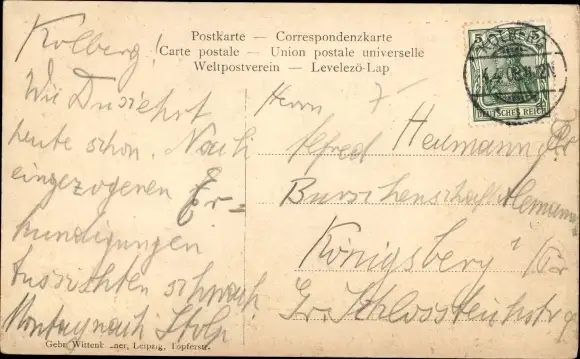 Postkarte — Correspondenzkarte
Carte postale — Union postale universelle
Weltpostverein — Levelező-Lap
Kolberg!
Wie Du siehst
heute schon. Nach
eingezogenen Er-
kundigungen
Aussichten schwach.
Montag nach Stolp
Herrn
Alfred Heumann
Burschenschaft Alemannia
Königsberg i/Pr
Gr. Schlossteichstr
5
DEUTSCHES REICH
Gebr. Wittenk ner, Leipzig, Töpferstr.